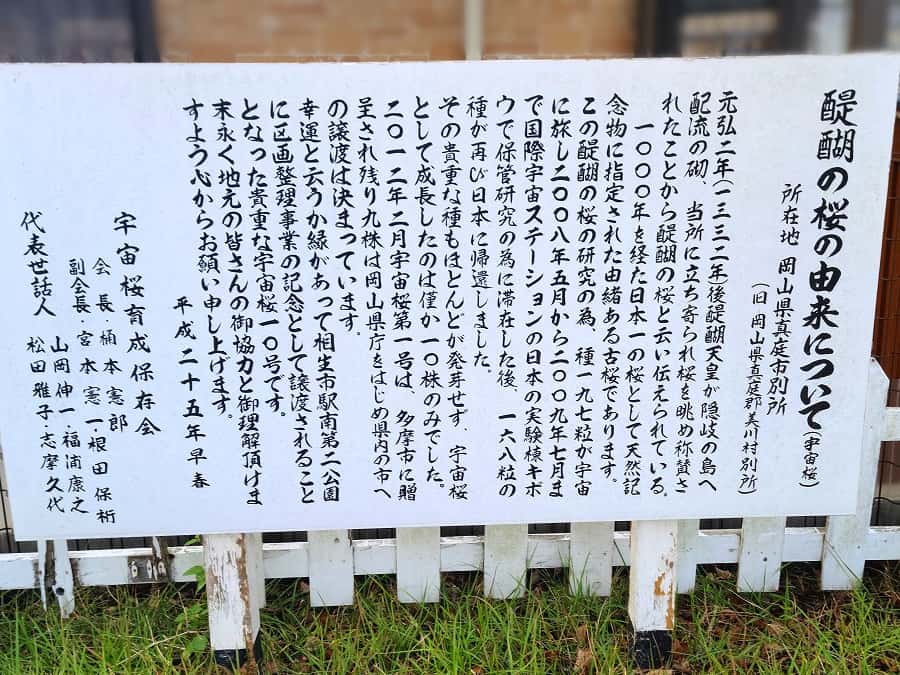 醍醐の桜の由来について(宇宙桜)
所在地 岡山県真庭市別所
(旧 岡山県真庭郡美川村別所)
元弘二年(一三三二年)後醍醐天皇が隠岐の島へ
配流の砌、当所に立ち寄られ桜を眺め称賛さ
れたことから醍醐の桜と云い伝えられている。
一〇〇〇年を経た日本一の桜として天然記
念物に指定された由緒ある古桜であります。
この醍醐の桜の研究の為、種一九七粒が宇宙
に旅し二〇〇八年五月から二〇〇九年七月ま
で国際宇宙ステーションの日本の実験棟キボ
ウで保管研究の為に滞在した後、一六八粒の
種が再び日本に帰還しました。
その貴重な種もほとんどが発芽せず、宇宙桜
として成長したのは僅か一〇株のみでした。
二〇一二年二月宇宙桜第一号は、多摩市に贈
呈され残り九株は岡山県庁をはじめ県内の市へ
の譲渡は決まっています。
幸運と云うか縁があって相生市駅南第二公園
に区画整理事業の記念として譲渡されること
となった貴重な宇宙桜一〇号です。
末永く地元の皆さんの御協力と御理解頂けま
すよう心からお願い申し上げます。
平成二十五年早春
宇宙桜育成保存会
会長・桶本憲郎
副会長・宮本憲一・根田保裄
山岡伸一・福浦康之
代表世話人 松田雅子・志摩久代